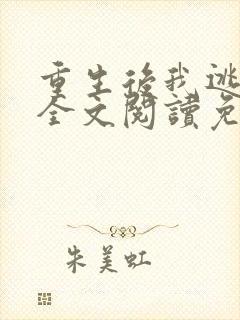 重生後我逃
全文閱讀免
朱美虹